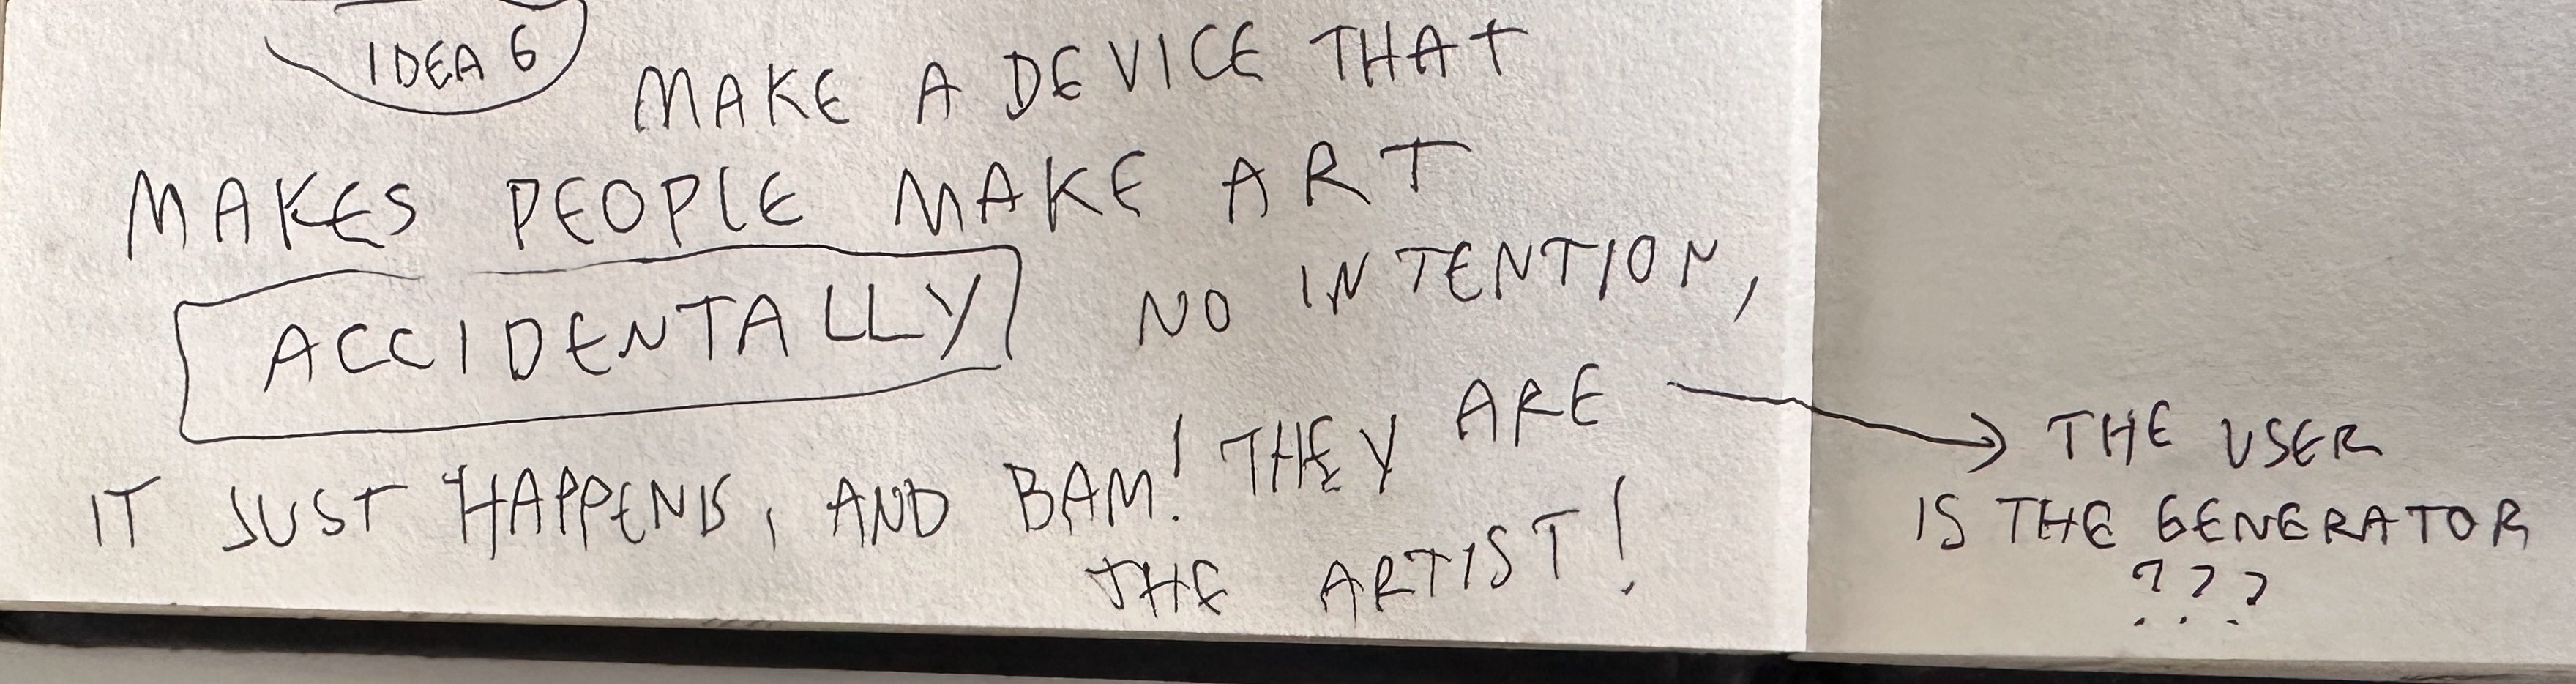 IDEA 6
MAKE A DEVICE THAT
MAKES PEOPLE MAKE ART
ACCIDENTALLY NO INTENTION,
IT JUST HAPPENS, AND BAM! THEY ARE
THE ARTIST!
→ THE USER
IS THE GENERATOR
???